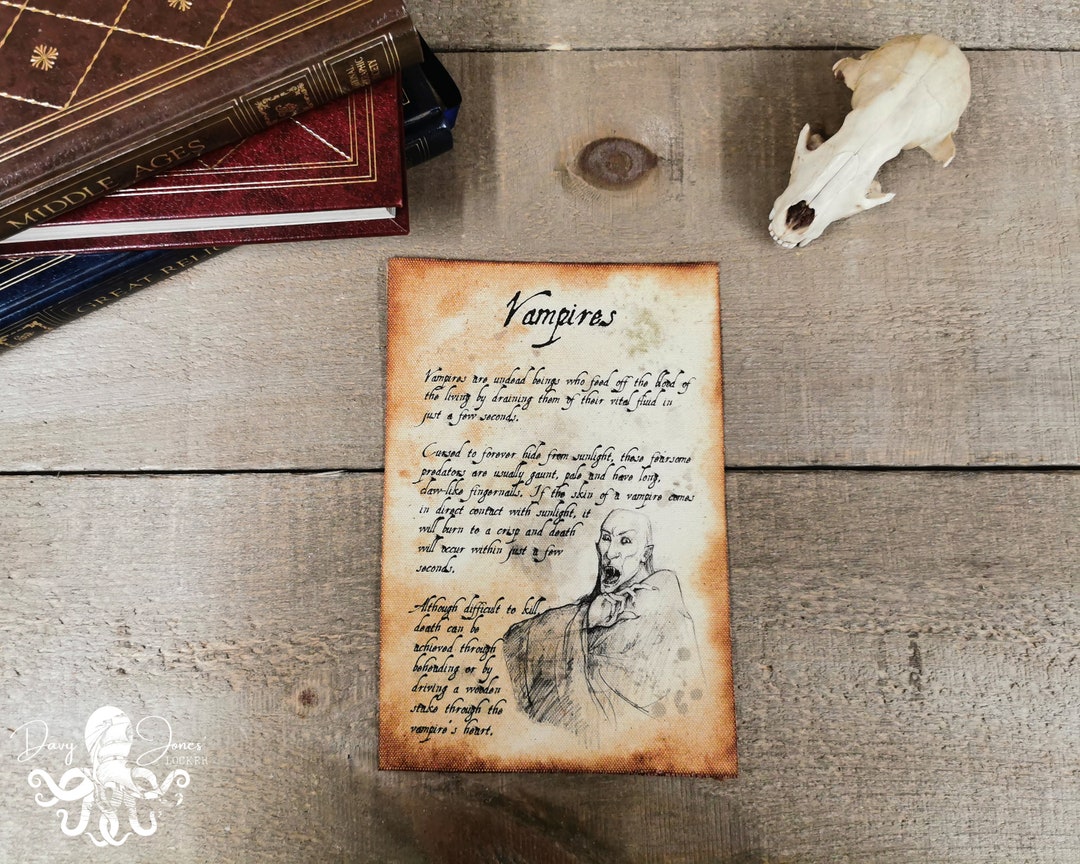 MIDDLE AGES
GREAT RELIG
Vampires
Vampires are undead beings who feed off the blood of
the living by draining them of their vital fluid in
just a few seconds.
Cursed to forever hide from sunlight, these fearsome
predators are usually gaunt, pale and have long,
claw-like fingernails. If the skin of a vampire comes
in direct contact with sunlight, it
will burn to a crisp and death
will occur within just a few
seconds.
Although difficult to kill,
death can be
achieved through
beheading or by
driving a wooden
stake through the
vampire's heart.
Davy Jones
LOCKER